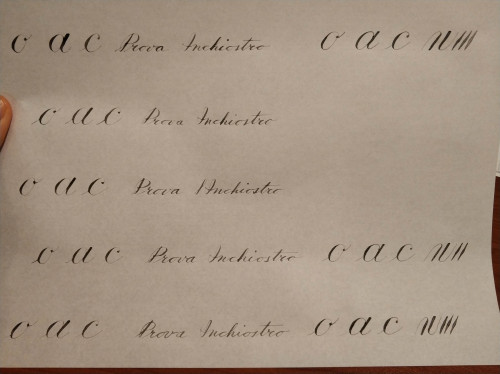 o a c Prova Inchiostro o a c
o a c Prova Inchiostro
o a c Prova Inchiostro
o a c Prova Inchiostro o a c
o a c Prova Inchiostro o a c